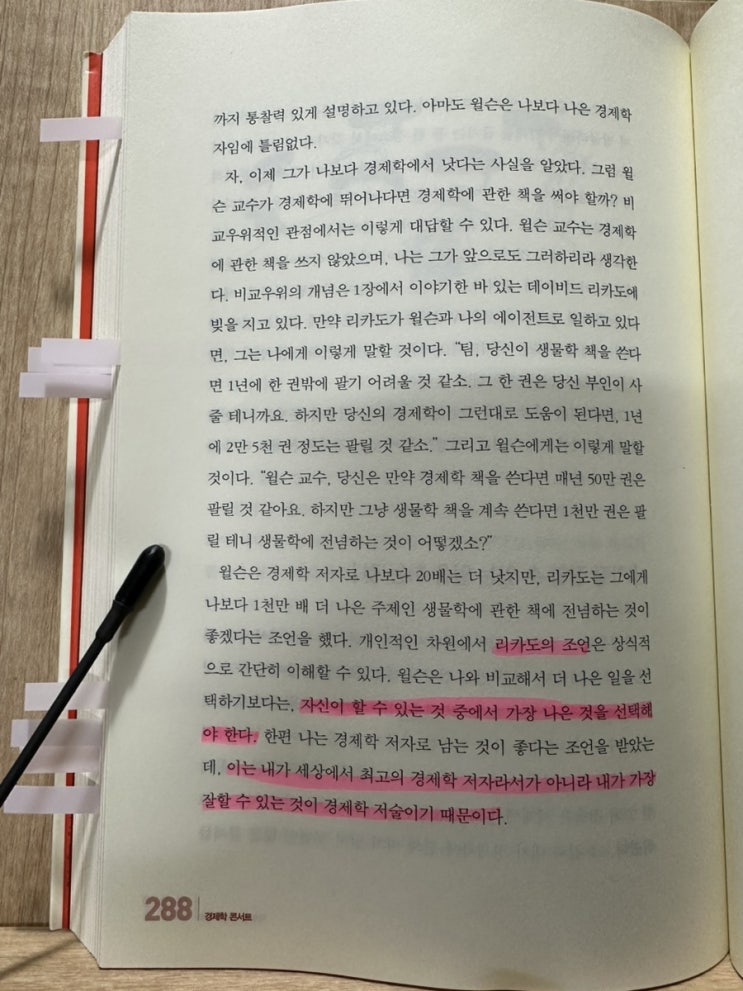 까지 통찰력 있게 설명하고 있다. 아마도 윌슨은 나보다 나은 경제학
자임에 틀림없다.
자, 이제 그가 나보다 경제학에서 낫다는 사실을 알았다. 그럼 윌
슨 교수가 경제학에 뛰어나다면 경제학에 관한 책을 써야 할까? 비
교우위적인 관점에서는 이렇게 대답할 수 있다. 윌슨 교수는 경제학
에 관한 책을 쓰지 않았으며, 나는 그가 앞으로도 그러하리라 생각한
다. 비교우위의 개념은 1장에서 이야기한 바 있는 데이비드 리카도에
빚을 지고 있다. 만약 리카도가 윌슨과 나의 에이전트로 일하고 있다
면, 그는 나에게 이렇게 말할 것이다. “팀, 당신이 생물학 책을 쓴다
면 1년에 한 권밖에 팔기 어려울 것 같소. 그 한 권은 당신 부인이 사
줄 테니까요. 하지만 당신의 경제학이 그런대로 도움이 된다면, 1년
에 2만 5천 권 정도는 팔릴 것 같소.” 그리고 윌슨에게는 이렇게 말할
것이다. “윌슨 교수, 당신은 만약 경제학 책을 쓴다면 매년 50만 권은
팔릴 것 같아요. 하지만 그냥 생물학 책을 계속 쓴다면 1천만 권은 팔
릴 테니 생물학에 전념하는 것이 어떻겠소?”
윌슨은 경제학 저자로 나보다 20배는 더 낫지만, 리카도는 그에게
나보다 1천만 배 더 나은 주제인 생물학에 관한 책에 전념하는 것이
좋겠다는 조언을 했다. 개인적인 차원에서 리카도의 조언은 상식적
으로 간단히 이해할 수 있다. 윌슨은 나와 비교해서 더 나은 일을 선
택하기보다는, 자신이 할 수 있는 것 중에서 가장 나은 것을 선택해
야 한다. 한편 나는 경제학 저자로 남는 것이 좋다는 조언을 받았는
데, 이는 내가 세상에서 최고의 경제학 저자라서가 아니라 내가 가장
잘할 수 있는 것이 경제학 저술이기 때문이다.
288 경제학 콘서트